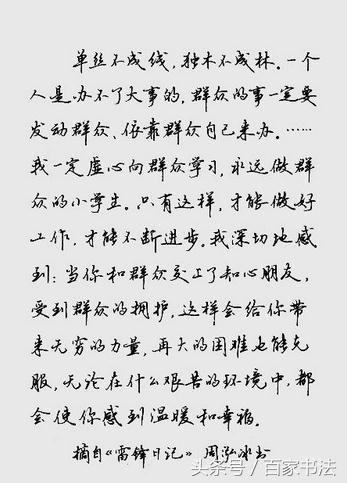 单丝不成线，独木不成林。一个
人是办不了大事的，群众的事一定要
发动群众、依靠群众自己来办。……
我一定虚心向群众学习，永远做群
众的小学生。只有这样，才能做好
工作，才能不断进步。我深切地感
到：当你和群众交上了知心朋友，
受到群众的拥护，这样会给你带
来无穷的力量，再大的困难也能克
服，无论在什么艰苦的环境中，都
会使你感到温暖和幸福。
摘自《雷锋日记》 周泓冰书
头条号／百家书法